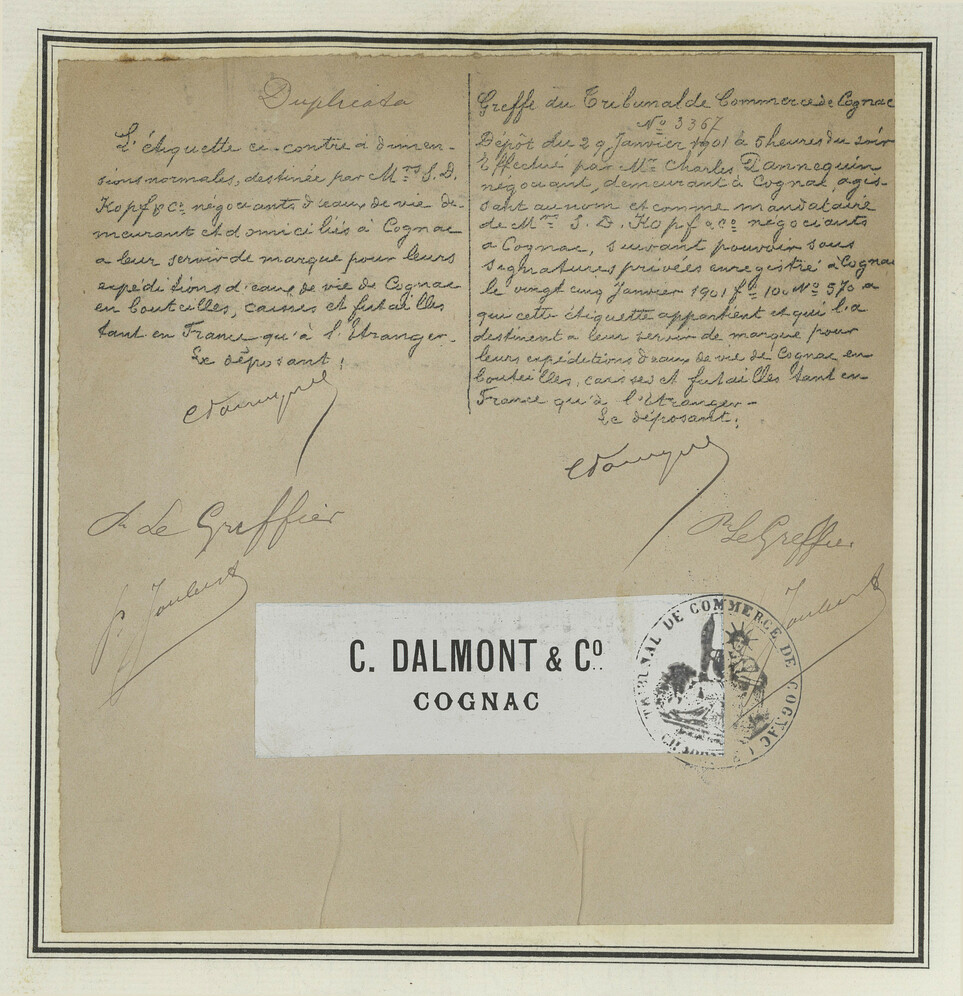 Duplicata
L'étiquette ci-contre à dimen-
sions normales, destinée par Mrs S. D.
Kopf & Co négociants d'eaux de vie de-
meurant et domiciliés à Cognac
a leur servir de marque pour leurs
expéditions d'eaux de vie de Cognac
en bouteilles, caisses et futailles
tant en France qu'à l'Etranger-
Le déposant:
Pr Le Greffier
Joubert
Greffe du Tribunal de Commerce de Cognac
No 3367
Dépôt du 29 Janvier 1901 à 5 heures du soir
Effectué par Mr Charles Tannequin
négociant, demeurant à Cognac, agis-
sant au nom et comme mandataire
de Mrs S. D. Kopf & Co négociants
a Cognac, suivant pouvoir sous
signatures privées enregistré à Cognac
le vingt cinq Janvier 1901 fo 100 No 570 a
qui cette étiquette appartient et qui l'a
destinent a leur servir de marque pour
leurs expéditions d'eaux de vie de Cognac en
bouteilles, caisses et futailles tant en
France qu'à l'étranger-
Le déposant:
Pr Le Greffier
Joubert
C. DALMONT & Co.
COGNAC
TRIBUNAL DE COMMERCE DE COGNAC